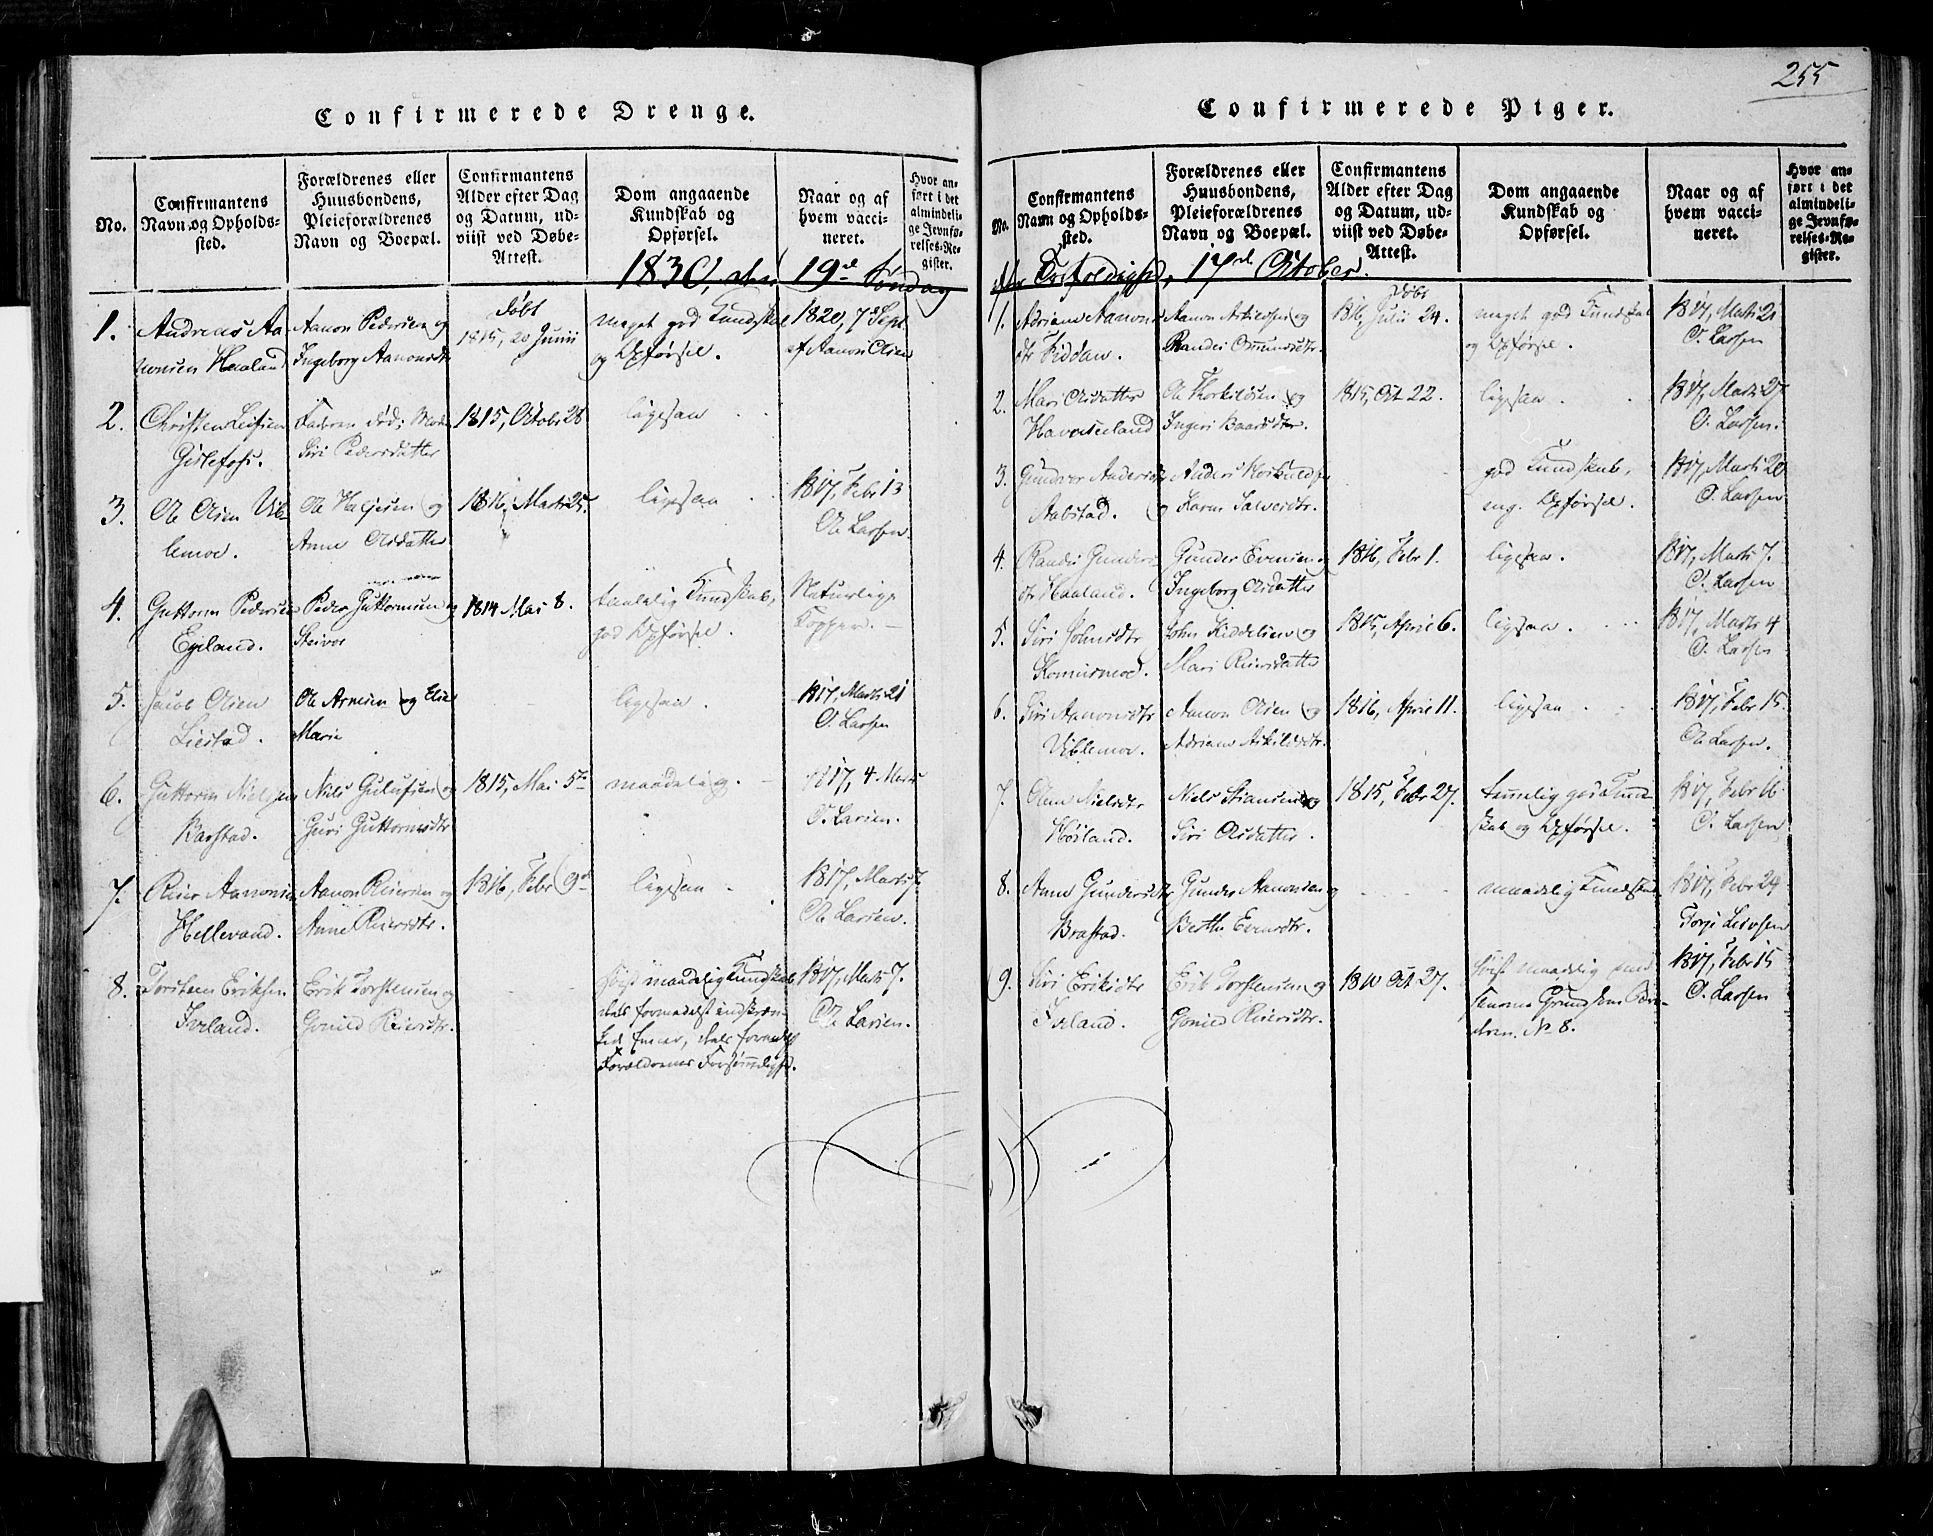 255
Confirmerede Drenge.
No.
Confirmantens
Navn og Opholds-
sted.
Forældrenes eller
Huusbondens,
Pleieforældrenes
Navn og Boepæl.
Confirmantens
Alder efter Dag
og Datum, ud-
viist ved Døbe-
Attest.
Dom angaaende
Kundskab og
Opførsel.
Naar og af
hvem vacci-
neret.
Hvor an-
ført i det
almindeli-
ge Jevnfø-
relses-Re-
gister.
1830, 19de Søndag
1.
Andreas Aa-
nonsen Haaland
Aanon Pedersen og
Ingeborg Aanonsdtr
døbt
1815, 20 Junii
meget god Kundskab
og Opførsel.
1820, 7de Sept.
af Aanon Olsen
2.
Christen
Gislefoss.
Faderen død; Moder
Siri Pedersdatter
1815, Octobr 28
ligesaa
3.
Ole Olsen Ub-
lemoe.
Ole Haljesen og
Anne Olsdatter
1816, Marts 25.
ligesaa
1817, Febr 13
Ole Larsen.
4.
Guttorm Pedersen
Egeland.
Peder Guttormsen og
Steivor
1814 Mai 8.
taalelig Kundskab,
god Opførsel.
Naturlige
Kopper.
5.
Jacob Olsen
Liestad.
Ole Arnesen og Else
Marie
ligesaa.
1817, Marts 21
O. Larsen
6.
Guttorm Nielsen
Barstad.
Niels Gulufsen og
Guri Guttormsdtr
1815, Mai 5te
maadelig.
1817, 4 Marts
O. Larsen.
7.
Reier Aanonsen
Hellevand.
Aanon Reiersen og
Anne Reiersdtr.
1816, Febr 9de
ligesaa
1817, Marts 7.
Ole Larsen.
8.
Torsten Eriksen
Iveland.
Erik Torstensen og
Gonild Reiersdtr.
høist maadelig Kundskab
dels formedelst indskræn-
ket Emner, dels formedelst
Forældrenes Forsømmelighed.
1817, Marts 7.
Ole Larsen.
Confirmerede Piger.
No.
Confirmantens
Navn og Opholds-
sted.
Forældrenes eller
Huusbondens,
Pleieforældrenes
Navn og Boepæl.
Confirmantens
Alder efter Dag
og Datum, ud-
viist ved Døbe-
Attest.
Dom angaaende
Kundskab og
Opførsel.
Naar og af
hvem vacci-
neret.
Hvor an-
ført i det
almindeli-
ge Jevnfø-
relses-Re-
gister.
efter Trefoldighed, 17de October.
1.
Adriane Aanons-
dtr Fiddan.
Aanon Askildsen og
Randei Omundsdtr.
døbt
1816, Julii 24.
meget god Kundskab
og Opførsel.
1817, Marts 21
O. Larsen
2.
Mari Olsdatter
Haverseland
Ole Thorkildsen og
Ingeri Baarsdtr.
1815, Oct 22.
ligesaa.
1817, Marts 27
O. Larsen.
3.
Gundvor Andersdtr
Aabstad.
Anders
og Karen Salvesdtr.
god Kundskab,
og Opførsel.
1817, Marts 20
O. Larsen
4.
Randi Gunders-
dtr Haaland.
Gunder Evensen og
Ingeborg Olsdatter
1816, Febr 1.
ligesaa.
1817, Marts 7.
O. Larsen
5.
Siri Johnsdtr
Skomersmoe.
John Kiddelsen og
Mari Reiersdatter
1815, April 6.
ligesaa.
1817, Marts 4
O. Larsen
6.
Siri Aanonsdtr
Ublemoe.
Aanon Olsen og
Adriane Askildsdtr.
1816, April 11.
ligesaa
1817, Febr 15.
Ole Larsen.
7.
Olene Nielsdtr
Høiland.
Niels Stiansen og
Siri Olsdatter.
1815, Febr 27.
temmelig god Kund-
skab og Opførsel.
1817, Febr 16
O. Larsen
8.
Anne Gundersdtr
Brastad.
Gunder Aanonsen og
Berthe Evensdtr.
maadelig Kundskab
1817, Febr 24
Torje Leivsen
9.
Siri Eriksdtr
Iveland.
Erik Torstensen og
Gonild Reiersdtr.
1810 Oct 27.
høist maadelig
samme Grund som Bro-
deren. No 8.
1817, Febr 15
O. Larsen